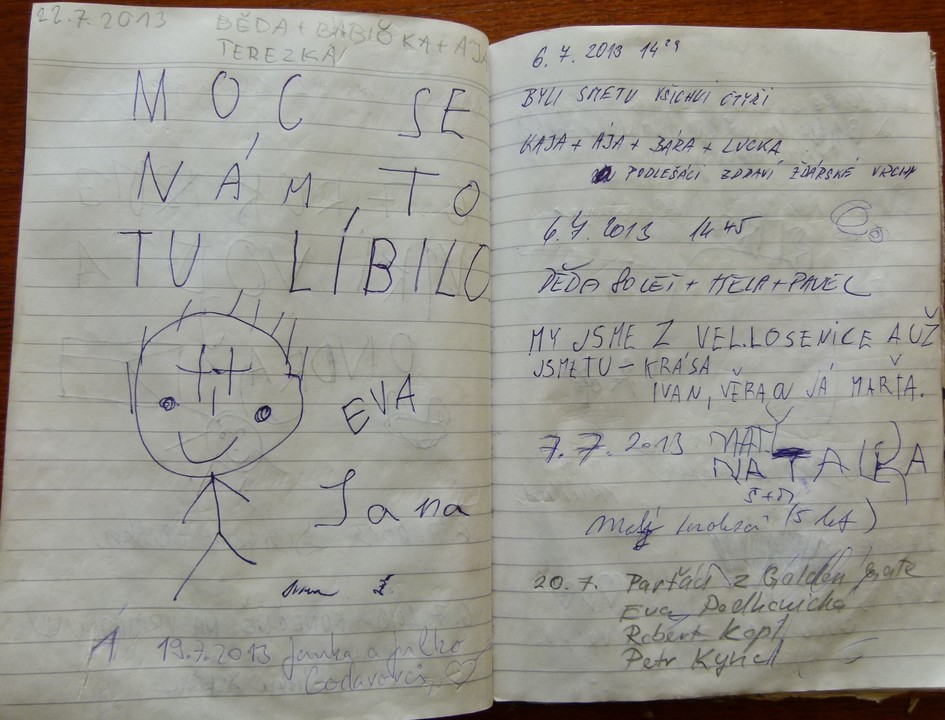 22.7.2013 BĚDA + BABIČKA + AJA
TEREZKA
MOC SE
NÁM, TO
TU LÍBILO
EVA
Jana
19.7.2013 Janka a Julko
6.7.2013 14²⁹
BYLI SMETU VŠICHNI ČTYŘI
KAJA + AJA + BÁRA + LUCKA
PODLEŠÁCI ZDRAVÍ ŽĎÁRSKÉ VRCHY
6.7.2013 14 45
DĚDA + HELA + PAVEL
MY JSME Z VEL.LOSENICE A UŽ
JSMETU - KRÁSA
IVAN, VĚRA JÁ MARŤA.
7.7.2013 NAT
NATALKA
(5 let)
20.7. Parťáci z Golden gate
Eva
Robert Kopl
Petr